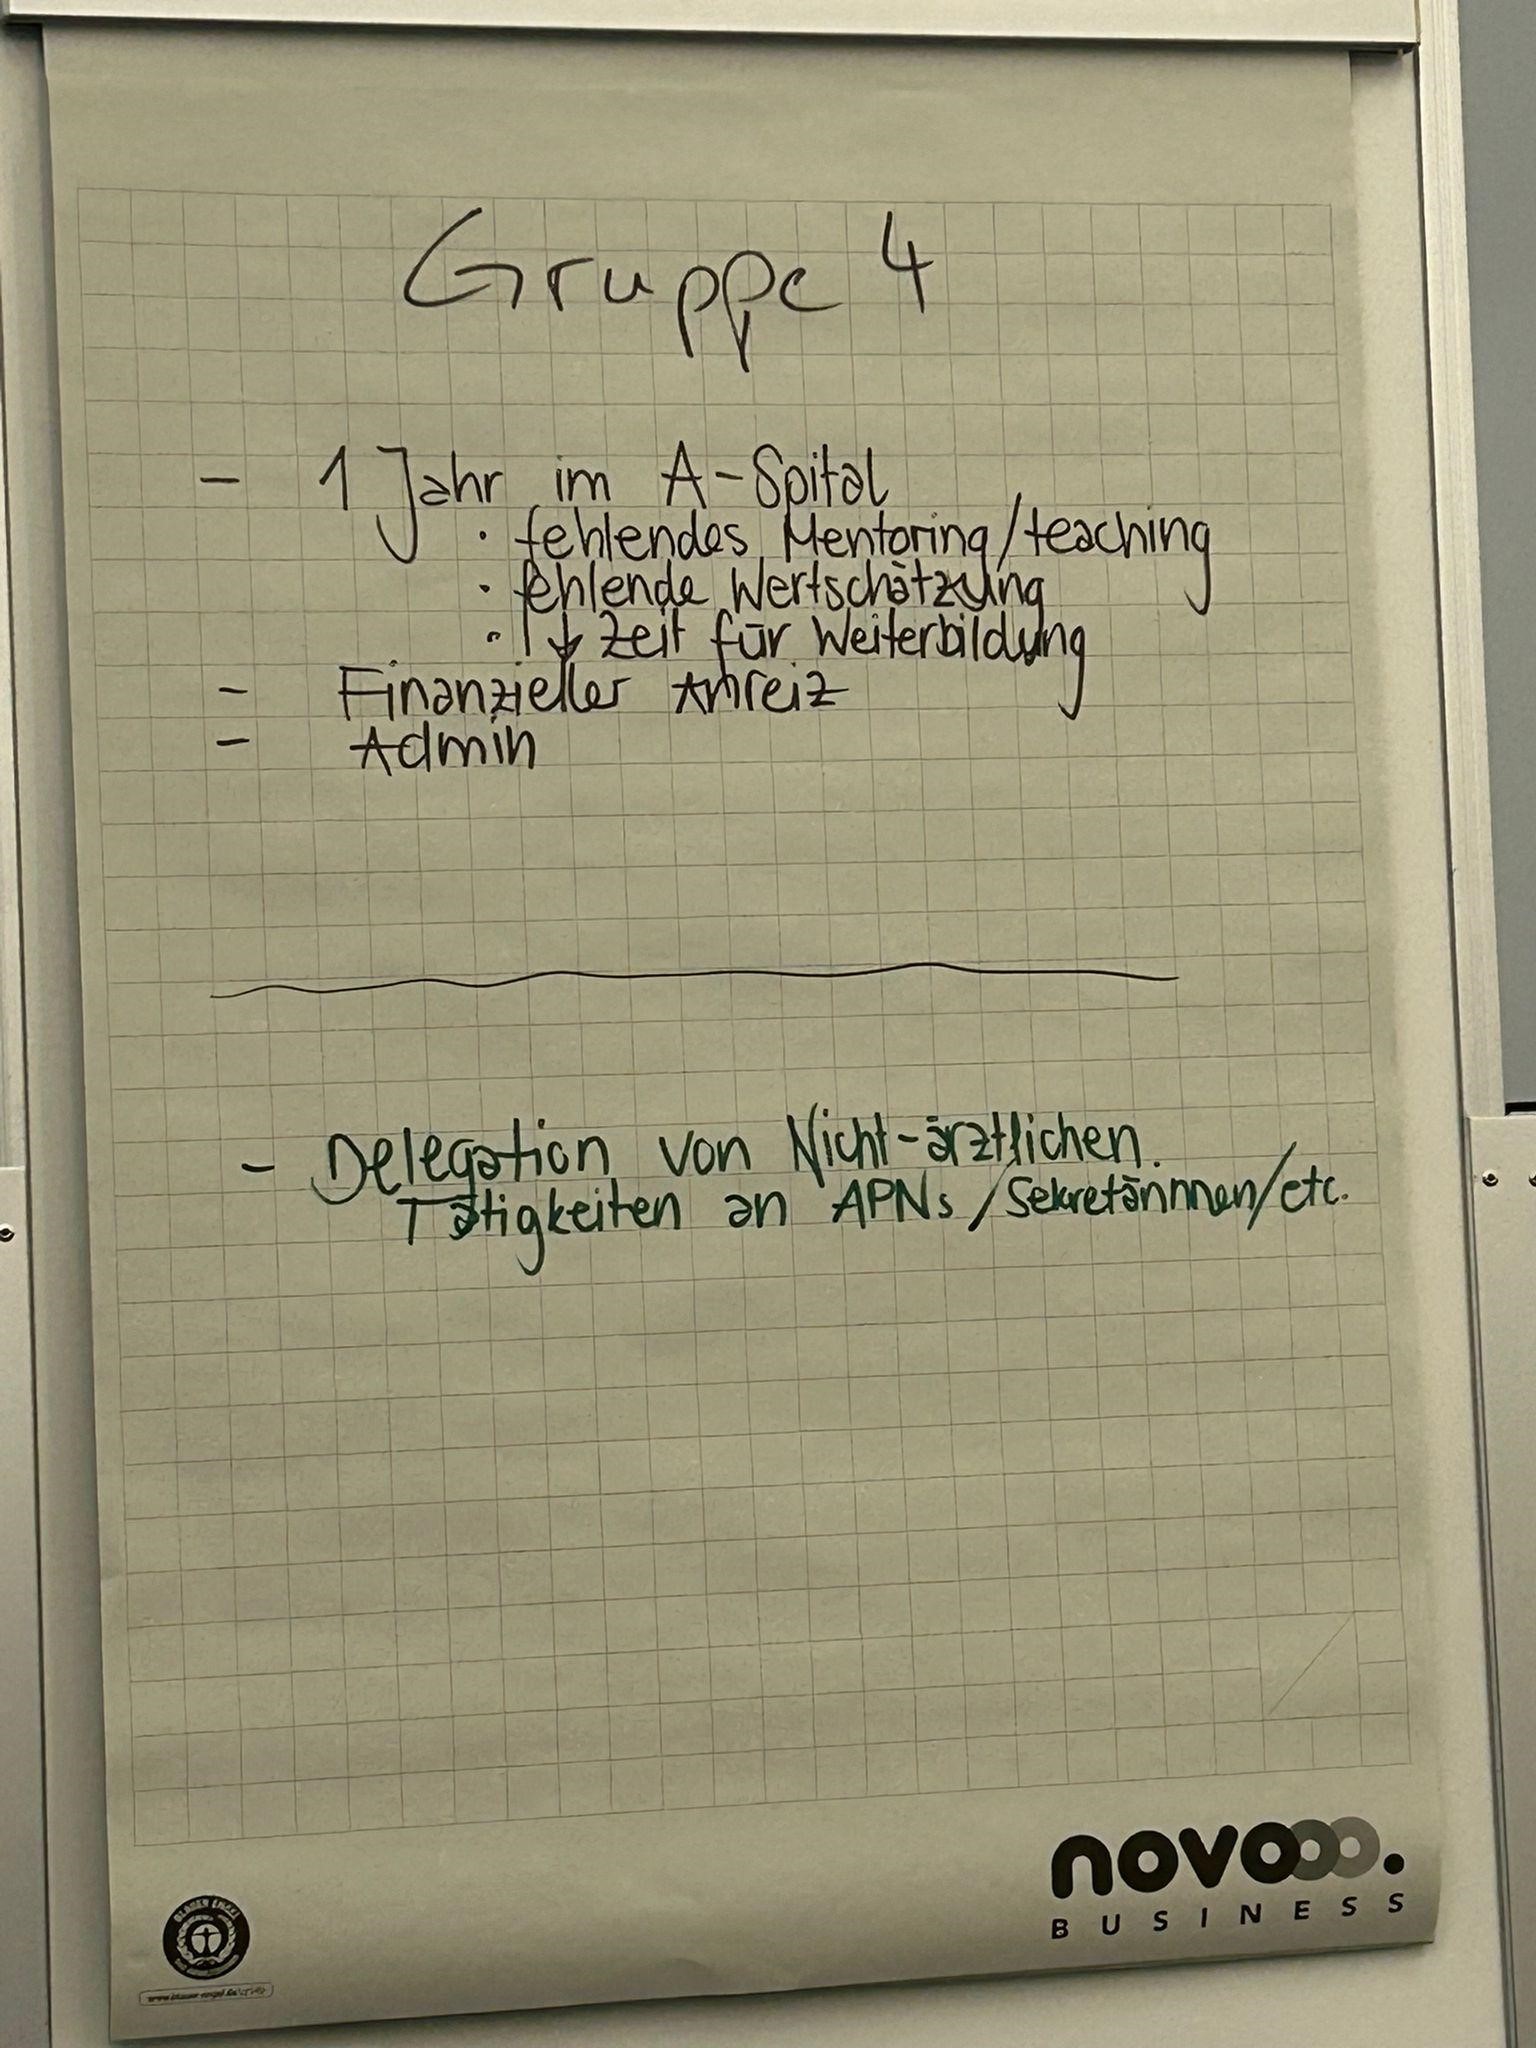 Gruppe 4
- 1 Jahr im A-Spital
· fehlendes Mentoring/teaching
· fehlende Wertschätzung
· ↓ Zeit für Weiterbildung
- Finanzieller Anreiz
- Admin
- Delegation von Nicht-ärztlichen
Tätigkeiten an APNs/Sekretärinnen/etc.
novooo.
BUSINESS